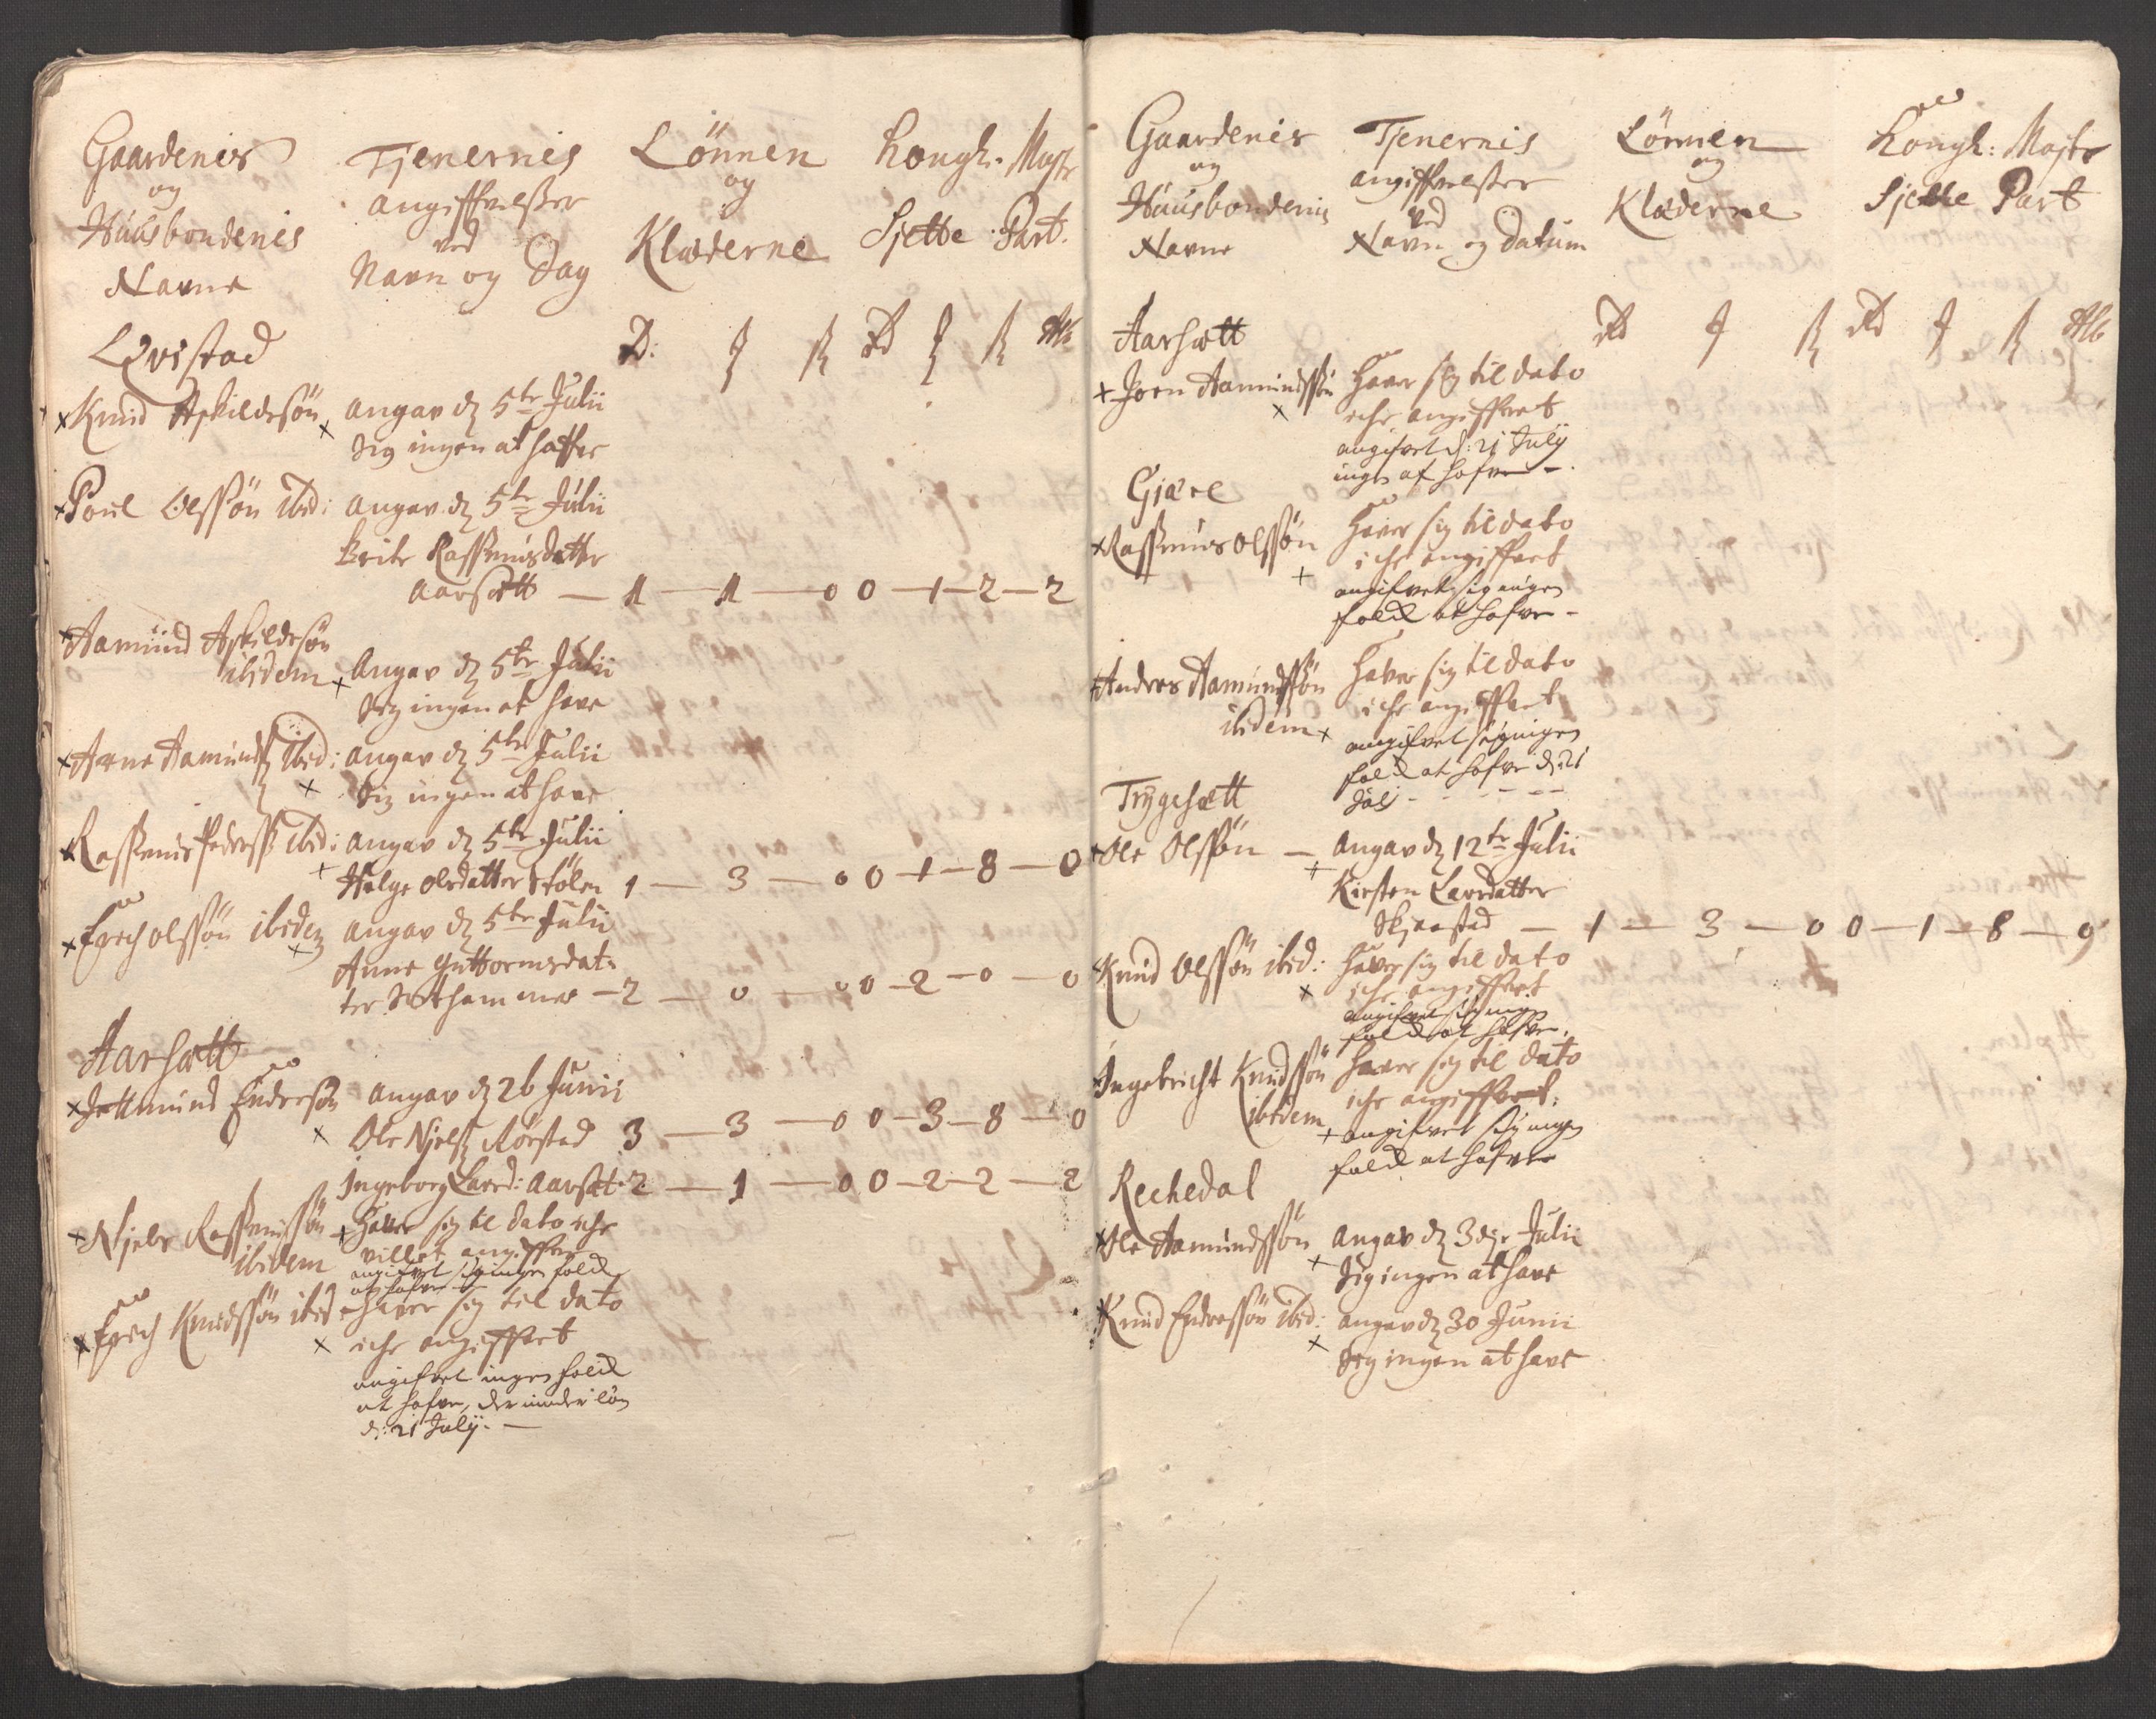 Gaardenis
og
Huusbondenis
Navne
Tjenernis
angiffvelsser
ved
Navn og Dag
Lönnen
og
Klæderne
Kongl. Mayts
Sjette Part.
Qvistad
Knud Askildsön
angav d 5te Julii
sig ingen at haffve
Poul Olssön ibid:
angav d 5te Julii
Brite Rassmusdatter
Aarsætt — 1 — 1 — 0 0 — 1 — 2 — 2
Aamund Askildsön
ibidem
Angav d 5te Julii
sig ingen at have
Arne Aamunds ibid:
angav d 5te Julii
sig ingen at have
Rassmus Pederss ibid:
angav d 5te Julii
Helge Olsdatter Stölen 1 — 3 — 0 0 — 1 — 8 — 0
Erich Olssön ibidem
angav d 5te Julii
Anne Guttormsdat-
ter Sæthammer — 2 — 0 — 0 0 — 2 — 0 — 0
Aarsætt
Jettmund Endresön
angav d 26 Junii
Ole Njels Rörstad 3 — 3 — 0 0 — 3 — 8 — 0
Ingeborg Larsd: Aarsæt 2 — 1 — 0 0 — 2 — 2 — 2
Njels Rassmussön
ibidem
Haver sig til dato iche
villet angiffve
angifvet sig ingen folck
at hafve
Erich Knudssön ibid
haver sig til dato
iche angiffvet
angifvet ingen folck
at hafve, der minder lön
d: 21 Julij. —
Gaardenis
og
Huusbondenis
Navne
Tjenernis
angiffvelsser
ved
Navn og Datum
Lönnen
og
Klæderne
Kongl: Mayts
Sjette Part
Aarsætt
Joen Aamundssön
Haver sig til dato
iche angiffvet
angifvet d: 21 Julij
ingen at hafve —.
Gjære
Rassmus Olssön
Haver sig til dato
iche angiffvet
angifvet sig ingen
folck at hafve —
Andres Aamundssön
ibidem
Haver sig til dato
iche angiffvet
angifvet sig ingen
folck at hafve d: 21
Julij
Trygesætt
Ole Olssön —
Angav d 12te Julii
Kirsten Larsdatter
Skjaastad — 1 — 3 — 0 0 — 1 — 8 — 0
Knud Olssön ibid:
Haver sig til dato
iche angiffvet
angifvet sig ingen
folck at hafve.
Ingebricht Knudssön
ibidem
haver sig til dato
iche angiffvet.
angifvet sig ingen
folck at hafve
Rechedal
Ole Aamundssön
Angav d 3dje Julii
sig ingen at have
Knud Endressön ibid:
angav d 30 Junii
sig ingen at have